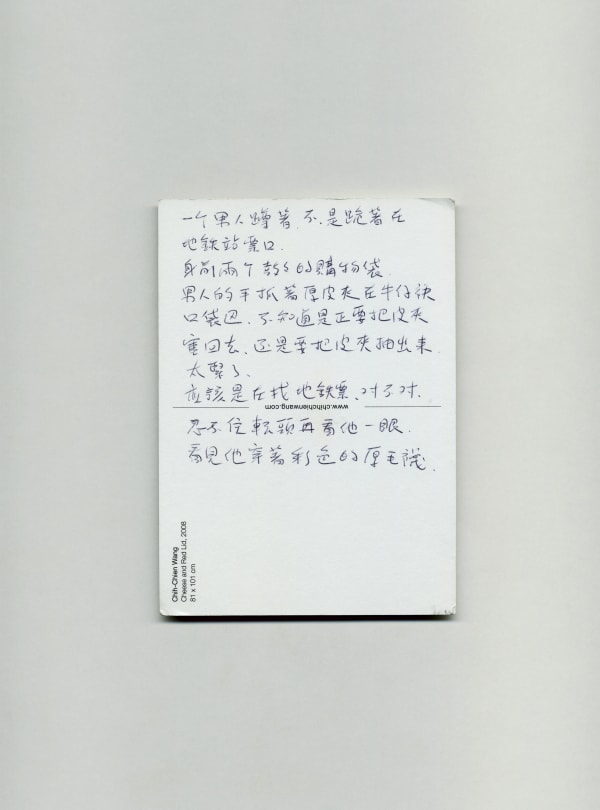 一个男人蹲著，不是跪著在
地鉄站票口.
身前兩个鼓鼓的購物袋.
男人的手抓著厚皮夾在牛仔袂
口袋边，不知道是正要把皮夾
塞回去，还是要把皮夾抽出來.
太緊了.
应該是在找地鉄票，对不对.
www.chihchienwang.com
忍不住転頭再看他一眼.
看見他穿著彩色的厚毛襪.
Chih-Chien Wang
Cheese and Red Lid, 2008
81 x 101 cm